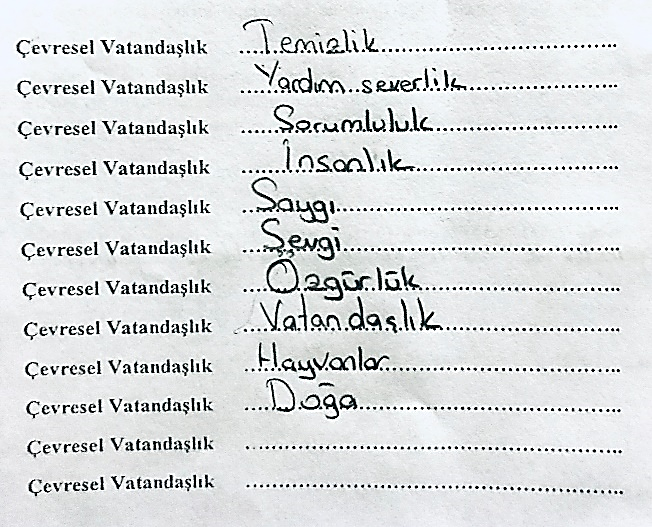 Çevresel Vatandaşlık ....Temizlik....
Çevresel Vatandaşlık ....Yardım severlik....
Çevresel Vatandaşlık ....Sorumluluk....
Çevresel Vatandaşlık ....İnsanlık....
Çevresel Vatandaşlık ....Saygı....
Çevresel Vatandaşlık ....Sevgi....
Çevresel Vatandaşlık ....Özgürlük....
Çevresel Vatandaşlık ....Vatandaşlık....
Çevresel Vatandaşlık ....Hayvanlar....
Çevresel Vatandaşlık ....Doğa....
Çevresel Vatandaşlık ....
Çevresel Vatandaşlık ....